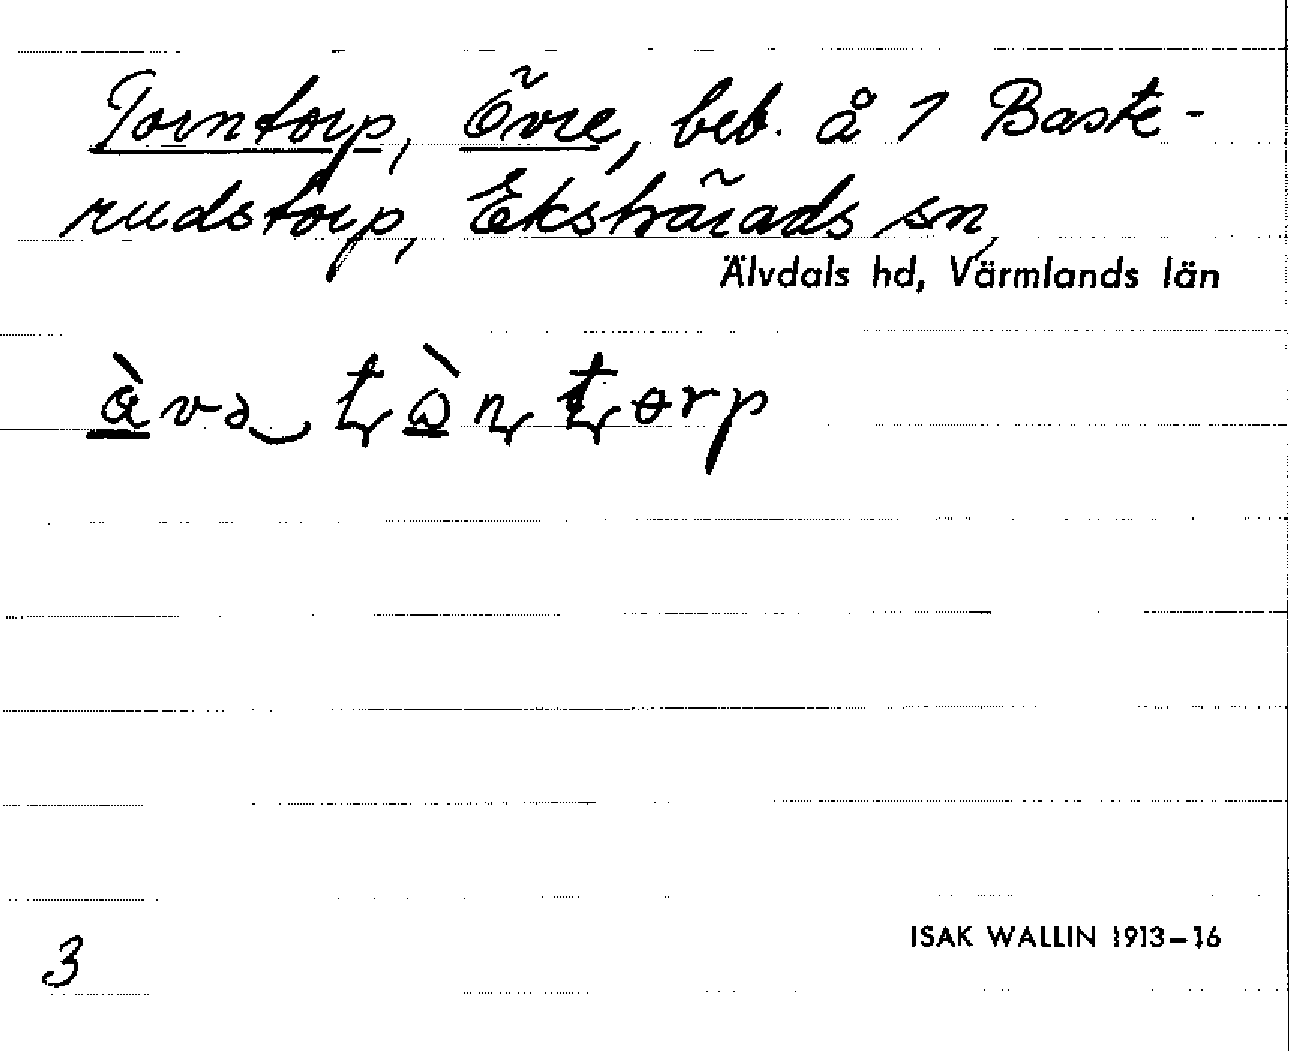 Torntorp, Övre, beb. å 1 Baste-
rudstorp, Ekshärads sn,
Älvdals hd, Värmlands län
ISAK WALLIN 1913–16
3